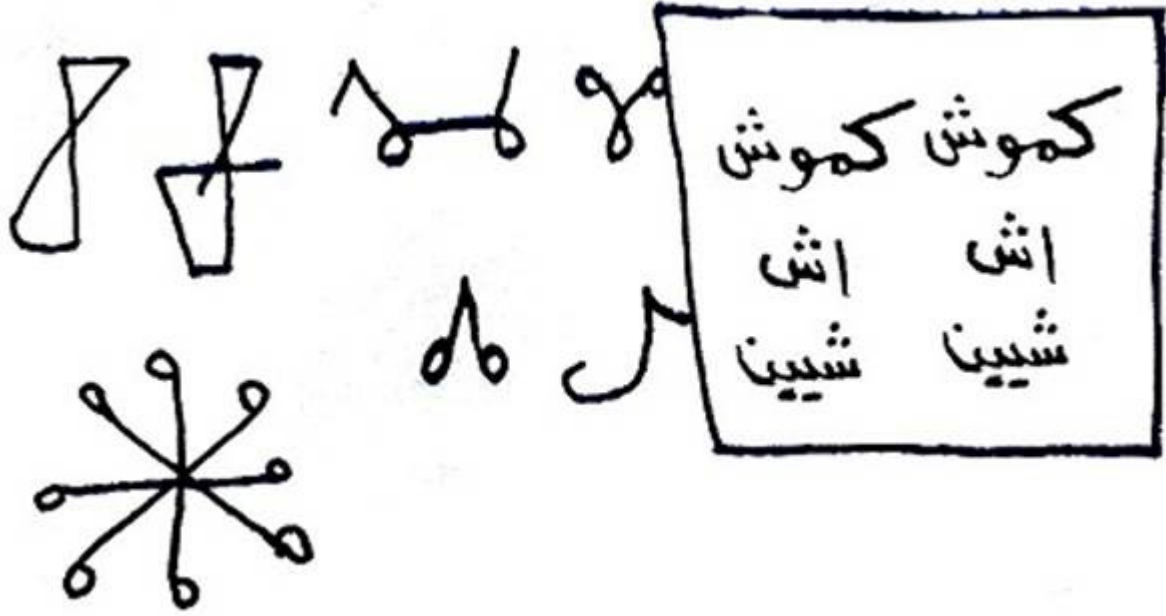 كموش كموش
اش اش
شيين شيين